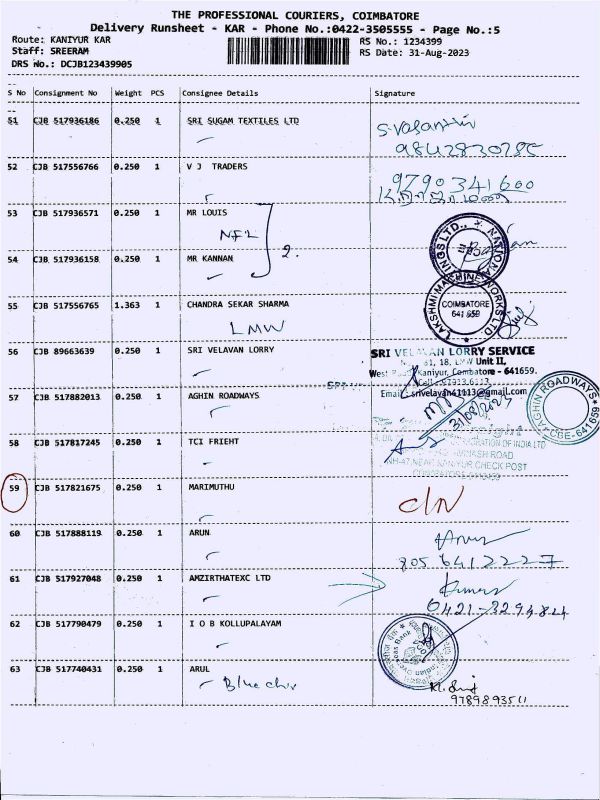 THE PROFESSIONAL COURIERS, COIMBATORE
Delivery Runsheet - KAR - Phone No.:0422-3505555 - Page No.:5
Route: KANIYUR KAR
RS No.: 1234399
Staff: SREERAM
RS Date: 31-Aug-2023
DRS No.: DCJB123439905
S No Consignment No Weight PCS Consignee Details Signature
51 CJB 517936186 0.250 1 SRI SUGAM TEXTILES LTD
52 CJB 517556766 0.250 1 V J TRADERS
9790341600
53 CJB 517936571 0.250 1 MR LOUIS
NFL
2.
54 CJB 517936158 0.250 1 MR KANNAN
55 CJB 517556765 1.363 1 CHANDRA SEKAR SHARMA
LMW
LAKSHMI MACHINE WORKS LTD
COIMBATORE
641 659
56 CJB 89663639 0.250 1 SRI VELAVAN LORRY
SRI VELAVAN LORRY SERVICE
18, LMW Unit II,
Kaniyur, Coimbatore - 641659.
Email: srivelavan61113@gmail.com
57 CJB 517882013 0.250 1 AGHIN ROADWAYS
31/08/2023
AGHIN ROADWAYS
CBE-641659
58 CJB 517817245 0.250 1 TCI FRIEHT
CORPORATION OF INDIA LTD
ROAD
NH-47, NEAR KANIYUR CHECK POST
59 CJB 517821675 0.250 1 MARIMUTHU
C/N
60 CJB 517888119 0.250 1 ARUN
Arun
8056412227
61 CJB 517927048 0.250 1 AMZIRTHATEXC LTD
0421-3294484
62 CJB 517790479 0.250 1 I O B KOLLUPALAYAM
63 CJB 517740431 0.250 1 ARUL
Blue chix
9789893511